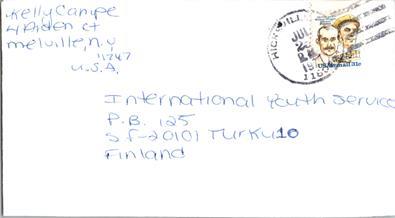 Kelly Campe
4 Arden ct
melville, n.y
11747
U.S.A.
HICKSVILLE
JUL
International Youth Service
P.B. 125
SF-20101 TURKU 10
Finland